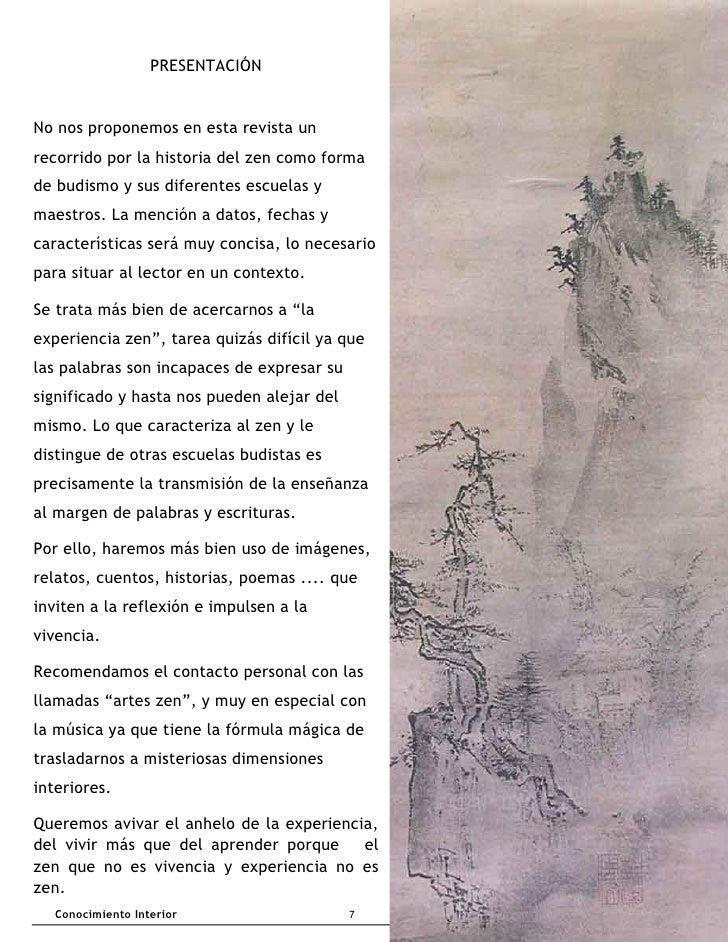 PRESENTACIÓN
No nos proponemos en esta revista un
recorrido por la historia del zen como forma
de budismo y sus diferentes escuelas y
maestros. La mención a datos, fechas y
características será muy concisa, lo necesario
para situar al lector en un contexto.
Se trata más bien de acercarnos a “la
experiencia zen”, tarea quizás difícil ya que
las palabras son incapaces de expresar su
significado y hasta nos pueden alejar del
mismo. Lo que caracteriza al zen y le
distingue de otras escuelas budistas es
precisamente la transmisión de la enseñanza
al margen de palabras y escrituras.
Por ello, haremos más bien uso de imágenes,
relatos, cuentos, historias, poemas .... que
inviten a la reflexión e impulsen a la
vivencia.
Recomendamos el contacto personal con las
llamadas “artes zen”, y muy en especial con
la música ya que tiene la fórmula mágica de
trasladarnos a misteriosas dimensiones
interiores.
Queremos avivar el anhelo de la experiencia,
del vivir más que del aprender porque el
zen que no es vivencia y experiencia no es
zen.
Conocimiento Interior 7